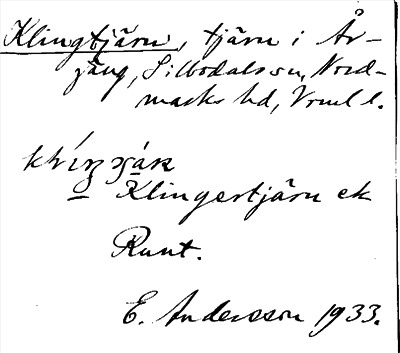 Klingtjärn, tjärn i År-
jäng, Silbodals sn, Nord-
marks hd, Vrml l.
Klingertjärn ek
Runt.
E. Andersson 1933.